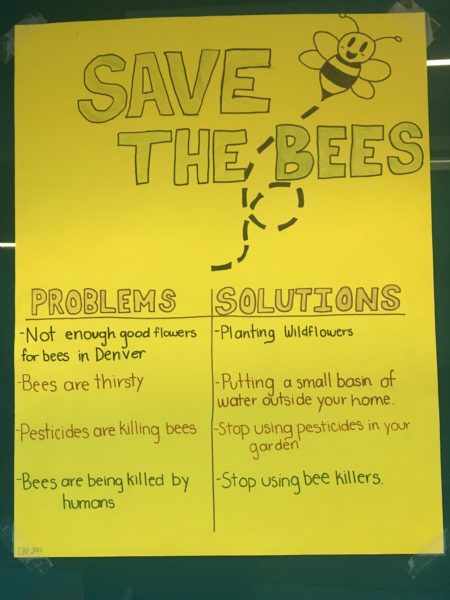 SAVE
THE BEES
PROBLEMS
-Not enough good flowers
for bees in Denver
-Bees are thirsty
-Pesticides are killing bees
-Bees are being killed by
humans
SOLUTIONS
-Planting Wildflowers
-Putting a small basin of
water outside your home.
-Stop using pesticides in your
garden
-Stop using bee killers.